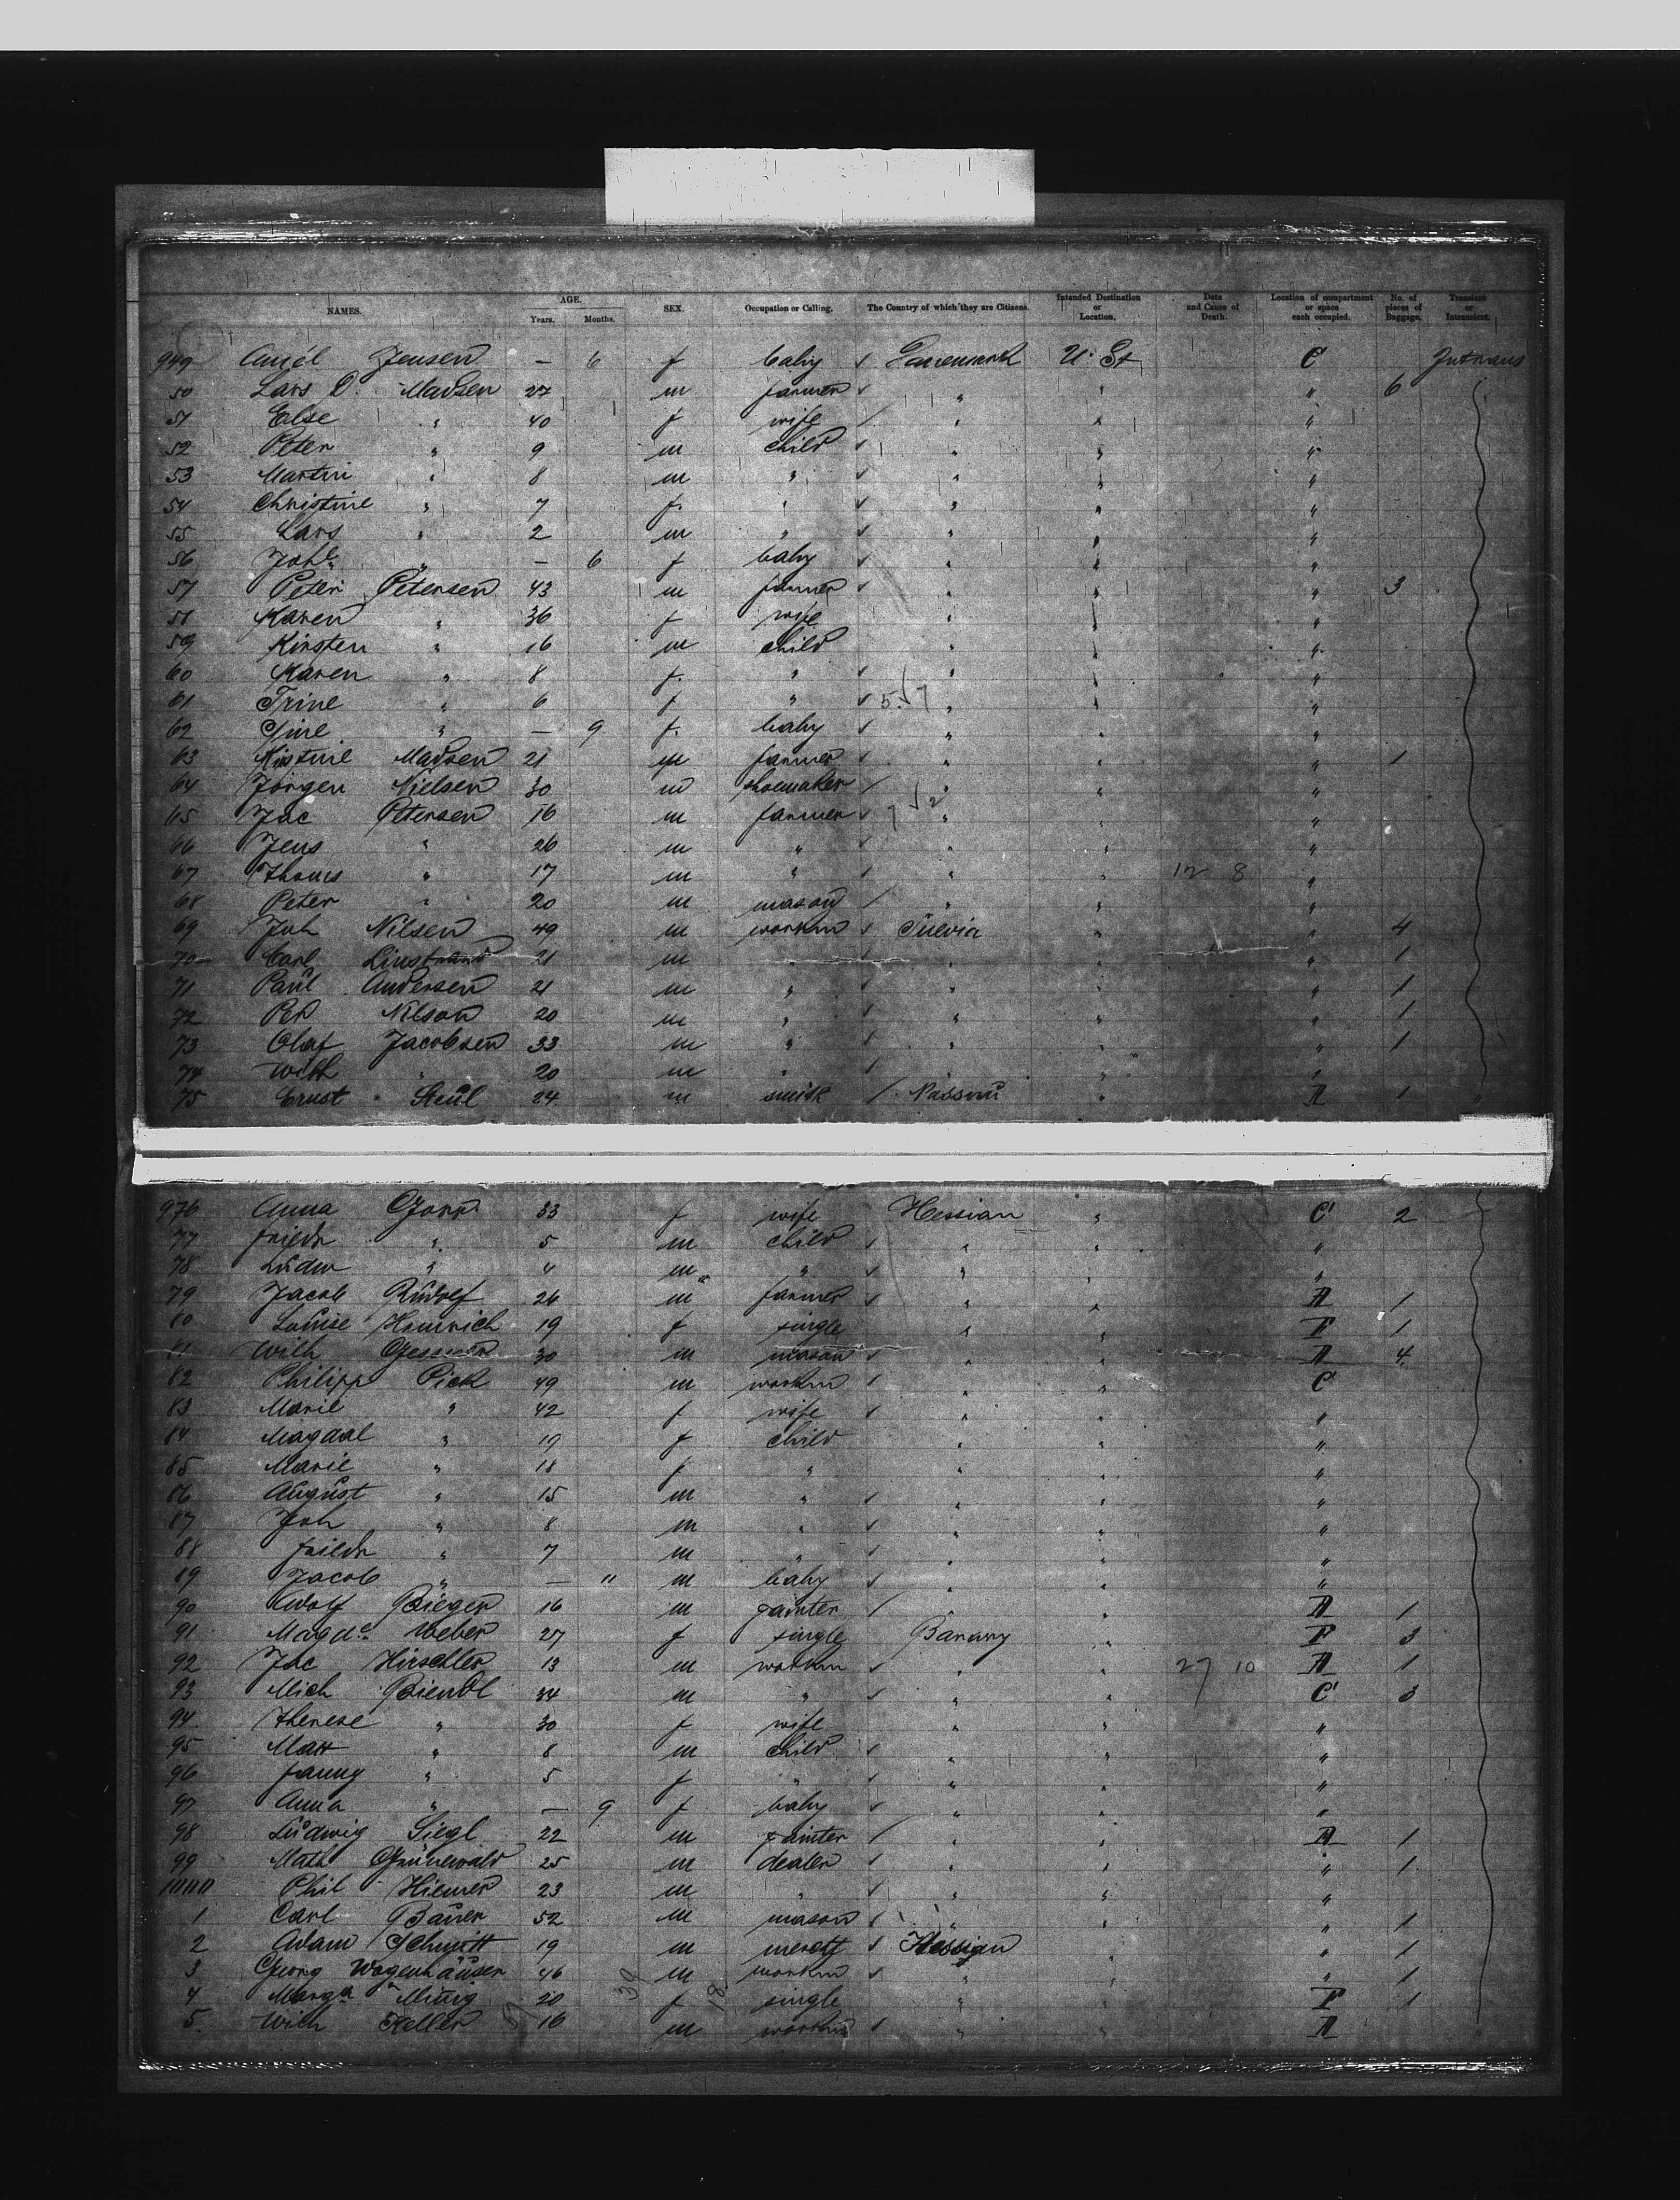 NAMES. AGE. Years. Months. SEX. Occupation or Calling. The Country of which they are Citizens. Intended Destination or Location. Date and Cause of Death. Location of compartment or space each occupied. No. of pieces of Baggage. Transient or Intransient.
949 Jensen — 6 f baby ✓ U. St C Intrans
50 Lars D. Madsen 27 m farmer ✓ " " " 6
51 Else " 40 f wife / " " "
52 Peter " 9 m child ✓ " " "
53 Martin " 8 m " " " "
54 Christine " 7 f. " ✓ " " "
55 Lars " 2 m " ✓ " " "
56 " — 6 f baby ✓ " " "
57 Peter Petersen 43 m farmer ✓ " " " 3
58 Karen " 36 f wife " " "
59 Kirsten " 16 m child " " "
60 Karen " 8 f. " ✓ " " "
61 Trine " 6 f " ✓ " " "
62 " — 9 f. baby ✓ " " "
63 Madsen 21 farmer ✓ " " " 1
64 Jörgen Nielsen 30 m shoemaker / " " "
65 Jac Petersen 16 m farmer ✓ " " "
66 Jens " 26 m " ✓ " " "
67 Thoms " 17 m " / " " 12 8 "
68 Peter " 20 m mason / " " "
69 Joh Nilsen 49 m workm ✓ Suevia " " 4
70 Carl 21 m " " " " 1
71 Paul Andersen 21 m " / " " " 1
72 Nilson 20 m " / " " " 1
73 Olaf Jacobsen 33 m " / " " " 1
74 Wilh " 20 m " / " "
75 Ernst Steul 24 m / Nassau " A 1 "
976 Anna 33 f wife Hessian " C 2
77 Friedr " 5 m child ✓ " " "
78 Ludw " 4 m " ✓ " " "
79 Jacob Rudolf 26 m farmer ✓ " " A 1
80 Louise Heinrich 19 f single " " F 1
81 Wilh 30 m mason ✓ " " A 4
82 Philipp Pick 49 m workm / " " C
83 Marie " 42 f wife ✓ " " "
84 Magdal " 19 f child " " "
85 Marie " 18 f " " " "
86 August " 15 m " ✓ " " "
87 Joh " 8 m " ✓ " " "
88 Friedr " 7 m " ✓ " " "
89 Jacob " — 11 m baby ✓ " " "
90 Adolf Bieger 16 m painter / " " A 1
91 Magde Weber 27 f single Bavary " F 3
92 Jac Hirschler 13 m workm ✓ " " 27 10 A 1
93 Mich Biendl 34 m " ✓ " " C 3
94 Therese " 30 f wife " " "
95 Max " 8 m child ✓ " " "
96 Fanny " 5 f " ✓ " " "
97 Anna " — 9 f baby ✓ " " "
98 Ludwig Siegl 22 m painter / " " A 1
99 Math Grünewald 25 m dealer ✓ " " " 1
Phil Hiemer 23 m " ✓ " " "
1 Carl Bauer 52 m mason ✓ " " " 1
2 Adam Schmitt 19 m ✓ Hessian " " 1
3 Georg Wagenhäuser 46 m workm ✓ " " " 1
4 Marga 20 f single " " F 1
5. Wilh Keller 16 m workm ✓ " " A